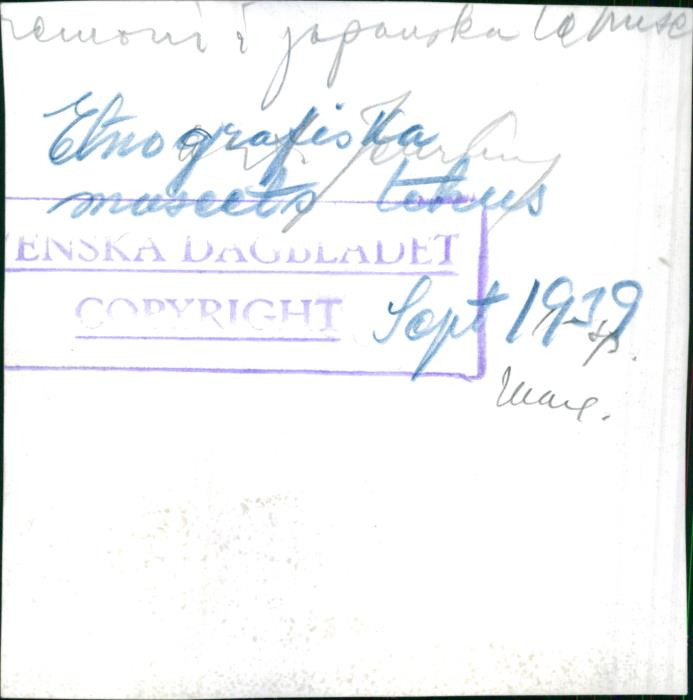 remoni i japanska tehuse
Etnografiska
museets tehus
VENSKA DAGBLADET
COPYRIGHT
Sept 1939